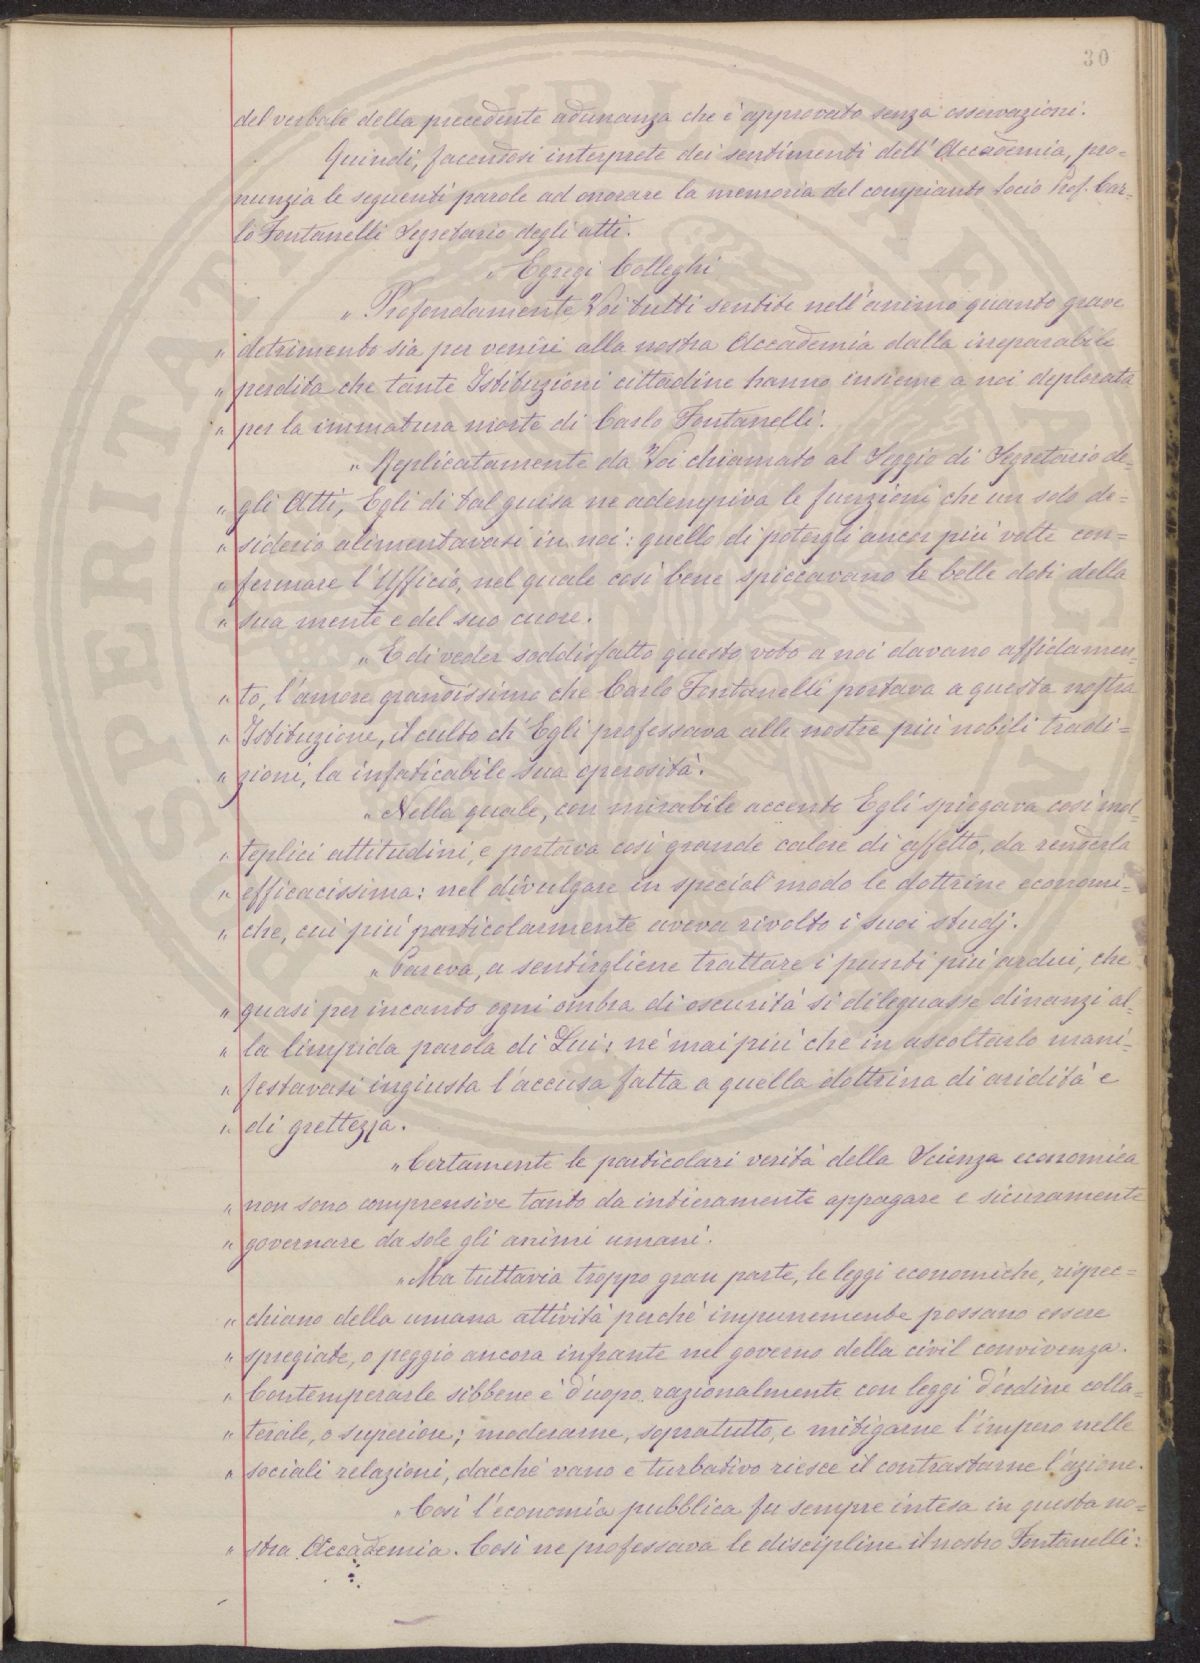 30
del verbale della precedente adunanza che è approvato senza osservazioni.
Quindi, facendosi interprete dei sentimenti dell'Accademia, pro=
nunzia le seguenti parole ad onorare la memoria del compianto Socio Prof. Car=
lo Fontanelli Segretario degli atti.
" Egregi Colleghi
" Profondamente Voi tutti sentite nell'animo quanto grave
" detrimento sia per venire alla nostra Accademia dalla irreparabile
" perdita che tante Istituzioni cittadine hanno insieme a noi deplorata
" per la immatura morte di Carlo Fontanelli.
" Replicatamente da Voi chiamato al Seggio di Segretario de=
" gli Atti, Egli di tal guisa ne adempiva le funzioni che un solo de=
" siderio alimentavasi in noi: quello di potergli ancor più volte con=
" fermare l'Ufficio, nel quale così bene spiccavano le belle doti della
" sua mente e del suo cuore.
" E di veder soddisfatto questo voto a noi davano affidamen=
" to, l'amore grandissimo che Carlo Fontanelli portava a questa nostra
" Istituzione, il culto ch'Egli professava alle nostre più nobili tradi=
" zioni, la infaticabile sua operosità.
" Nella quale, con mirabile accento Egli spiegava così mol=
" teplici attitudini, e portava così grande calore di affetto, da renderla
" efficacissima: nel divulgare in special modo le dottrine economi=
" che, cui più particolarmente aveva rivolto i suoi studj.
" Pareva, a sentirgliene trattare i punti più ardui, che
" quasi per incanto ogni ombra di oscurità si dileguasse dinanzi al=
" la limpida parola di Lui: né mai più che in ascoltarlo mani=
" festavasi ingiusta l'accusa fatta a quella dottrina di aridità e
" di grettezza.
" Certamente le particolari verità della Scienza economica
" non sono comprensive tanto da intieramente appagare e sicuramente
" governare da sole gli animi umani.
" Ma tuttavia troppo gran parte, le leggi economiche, rispec=
" chiano della umana attività perché impunemente possano essere
" spregiate, o peggio ancora infrante nel governo della civil convivenza.
" Contemperarle sibbene è d'uopo razionalmente con leggi d'ordine colla=
" terale, o superiore; moderarne, sopratutto, e mitigarne l'impero nelle
" sociali relazioni, dacché vano e turbativo riesce il contrastarne l'azione.
" Così l'economia pubblica fu sempre intesa in questa no=
" stra Accademia. Così ne professava le discipline il nostro Fontanelli: